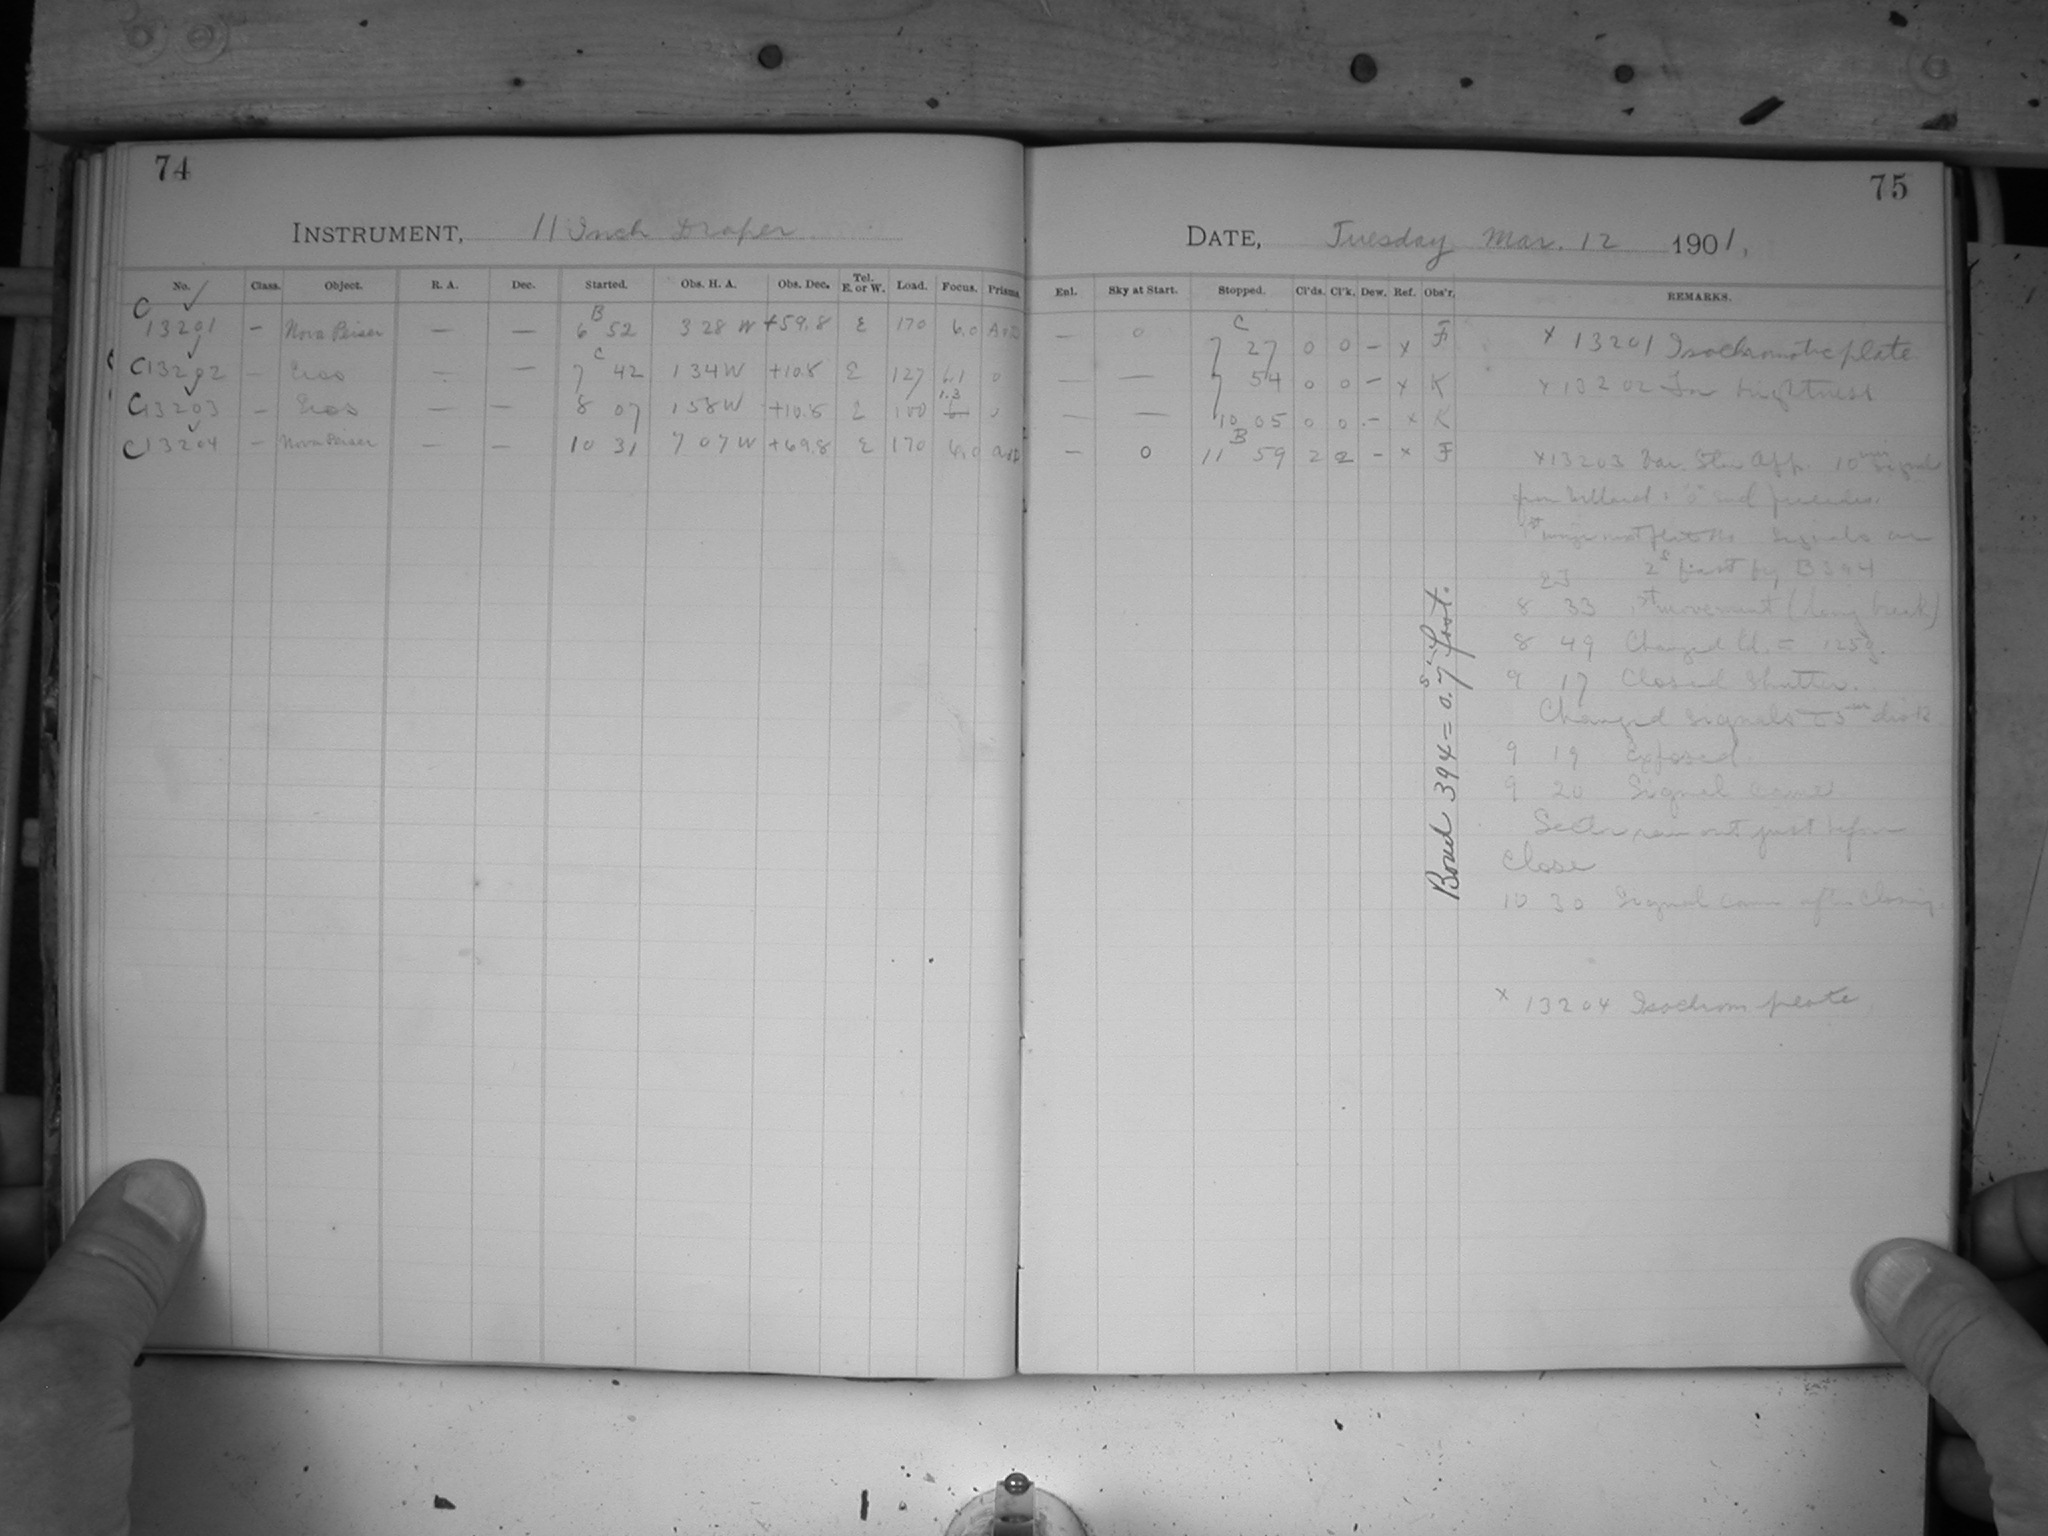 74
INSTRUMENT, 11 Inch Draper
No. Class. Object. R. A. Dec. Started. Obs. H. A. Obs. Dec. Tel. E. or W. Load. Focus. Prisms.
C 13201 — Nova Persei — — B 6 52 3 28 W +59.8 E 170 6.0
C 13202 — Eros — — C 7 42 1 34 W +10.8 E 127 6.1 0
C 13203 — Eros — — 8 07 1 58 W +10.8 E 100 1.3
C 13204 — Nova Persei — — 10 31 7 07 W +69.8 E 170 6.0
75
DATE, Tuesday Mar. 12 1901,
Enl. Sky at Start. Stopped. Cl'ds. Cl'k. Dew. Ref. Obs'r. REMARKS.
— 0 C 7 27 0 0 — x F x 13201 Isochromatic plate
— — 7 54 0 0 — x K x 13202 For brightness
— — 10 05 0 0 — x K
— 0 B 11 59 2 2 — x F x 13203 Var. Star App. 10
Signals are
2s fast by B 394
8 33 1st movement (long break)
8 49 Changed Ld. = 125g.
9 17 Closed Shutter.
Changed signals
9 19 Exposed.
9 20 Signal came
ran out just before
close
10 30 Signal came after closing.
x 13204 Isochrom plate
Bond 394 = 0.7s fast.